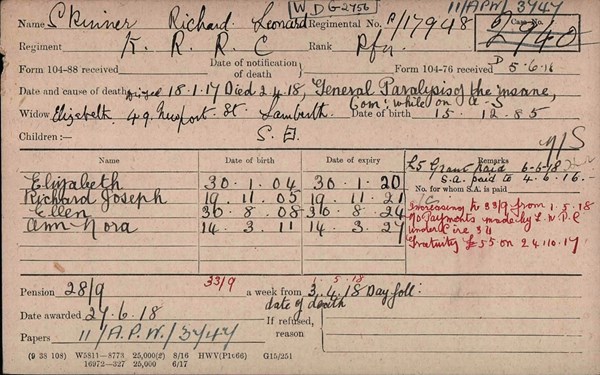 W D G-2756 11/APW/3747
Name Skinner Richard Leonard Regimental No. R/17948 Case No.
Regiment K. R. R. C Rank Rfn 6/2940
Form 104-88 received Date of notification of death Form 104-76 received D 5.6.18
Date and cause of death 18.1.17 Died 2.4.18, General Paralysis of the insane,
Com: while on A-S
Widow Elizabeth 49 Newport St. Lambeth Date of birth 15. 12. 85
Children:— S. E. N/S
Name Date of birth Date of expiry Remarks
£5 Grant Paid 6-6-18
S.A. paid to 4.6.16.—
Elizabeth 30. 1. 04 30. 1. 20 No. for whom S.A. is paid
Richard Joseph 19. 11. 05 19. 11. 21
Ellen 30. 8. 08 30. 8. 24
Ann Nora 14. 3. 11 14. 3. 27
Increasing to 33/9 from 1.5.18
No Payments made by L.W.P.C
under Circ 34
Gratuity £55 on 24.10.17
33/9 1. 5. 18
Pension 28/9 a week from 3. 4. 18 Day foll:
date of death
Date awarded 27.6.18 If refused,
reason
Papers 11/A.P.W./3747
(9 38 108) W5811—8773 25,000(2) 8/16 HWV(P1066) G15/251
16972—327 25,000 6/17